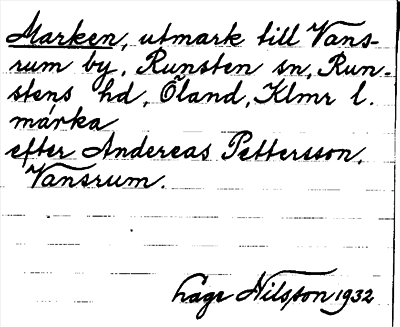 Marken, utmark till Vans-
rum by, Runsten sn, Run-
stens hd, Öland, Klmr l.
márka
efter Andereas Pettersson,
Vansrum.
Låge Nilsson 1932